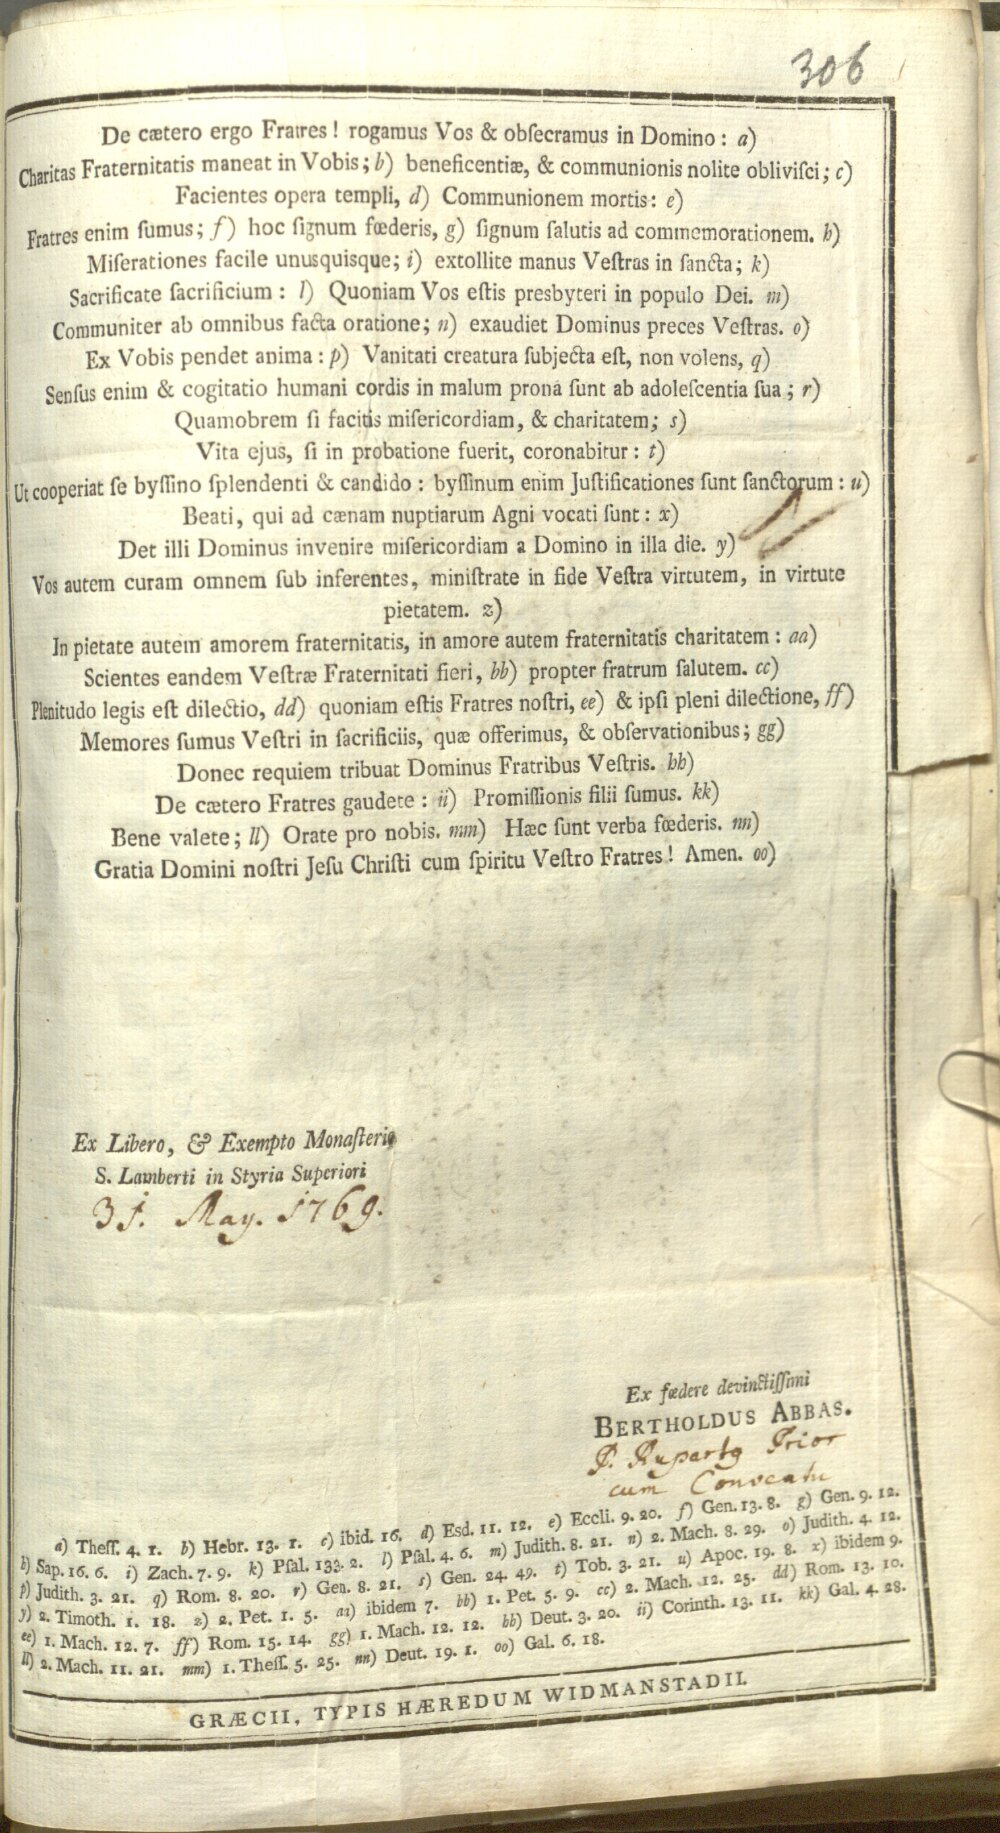 306
De cætero ergo Fratres! rogamus Vos & obſecramus in Domino: a)
Charitas Fraternitatis maneat in Vobis; b) beneficentiæ, & communionis nolite obliviſci; c)
Facientes opera templi, d) Communionem mortis: e)
Fratres enim ſumus; f) hoc ſignum fœderis, g) ſignum ſalutis ad commemorationem. h)
Miſerationes facile unusquisque; i) extollite manus Veſtras in ſancta; k)
Sacrificate ſacrificium: l) Quoniam Vos eſtis presbyteri in populo Dei. m)
Communiter ab omnibus facta oratione; n) exaudiet Dominus preces Veſtras. o)
Ex Vobis pendet anima: p) Vanitati creatura ſubjecta eſt, non volens, q)
Senſus enim & cogitatio humani cordis in malum prona ſunt ab adoleſcentia ſua; r)
Quamobrem ſi facitis miſericordiam, & charitatem; s)
Vita ejus, ſi in probatione fuerit, coronabitur: t)
Ut cooperiat ſe byſſino ſplendenti & candido: byſſinum enim Juſtificationes ſunt ſanctorum: u)
Beati, qui ad cænam nuptiarum Agni vocati ſunt: x)
Det illi Dominus invenire miſericordiam a Domino in illa die. y)
Vos autem curam omnem ſub inferentes, miniſtrate in fide Veſtra virtutem, in virtute
pietatem. z)
In pietate autem amorem fraternitatis, in amore autem fraternitatis charitatem: aa)
Scientes eandem Veſtræ Fraternitati fieri, bb) propter fratrum ſalutem. cc)
Plenitudo legis eſt dilectio, dd) quoniam eſtis Fratres noſtri, ee) & ipſi pleni dilectione, ff)
Memores ſumus Veſtri in ſacrificiis, quæ offerimus, & obſervationibus; gg)
Donec requiem tribuat Dominus Fratribus Veſtris. hh)
De cætero Fratres gaudete: ii) Promiſſionis filii ſumus. kk)
Bene valete; ll) Orate pro nobis. mm) Hæc ſunt verba fœderis. nn)
Gratia Domini noſtri Jeſu Chriſti cum ſpiritu Veſtro Fratres! Amen. oo)
Ex Libero, & Exempto Monaſterio
S. Lamberti in Styria Superiori
31. May. 1769.
Ex fœdere devinctiſſimi
BERTHOLDUS ABBAS.
P. Rupertg Prior
cum Conventu
a) Theſſ. 4. 1. b) Hebr. 13. 1. c) ibid. 16. d) Esd. 11. 12. e) Eccli. 9. 20. f) Gen. 13. 8. g) Gen. 9. 12.
h) Sap. 16. 6. i) Zach. 7. 9. k) Pſal. 133. 2. l) Pſal. 4. 6. m) Judith. 8. 21. n) 2. Mach. 8. 29. o) Judith. 4. 12.
p) Judith. 3. 21. q) Rom. 8. 20. r) Gen. 8. 21. s) Gen. 24. 49. t) Tob. 3. 21. u) Apoc. 19. 8. x) ibidem 9.
y) 2. Timoth. 1. 18. z) 2. Pet. 1. 5. aa) ibidem 7. bb) 1. Pet. 5. 9. cc) 2. Mach. 12. 25. dd) Rom. 13. 10.
ee) 1. Mach. 12. 7. ff) Rom. 15. 14. gg) 1. Mach. 12. 12. hh) Deut. 3. 20. ii) Corinth. 13. 11. kk) Gal. 4. 28.
ll) 2. Mach. 11. 21. mm) 1. Theſſ. 5. 25. nn) Deut. 19. 1. oo) Gal. 6. 18.
GRÆCII, TYPIS HÆREDUM WIDMANSTADII.